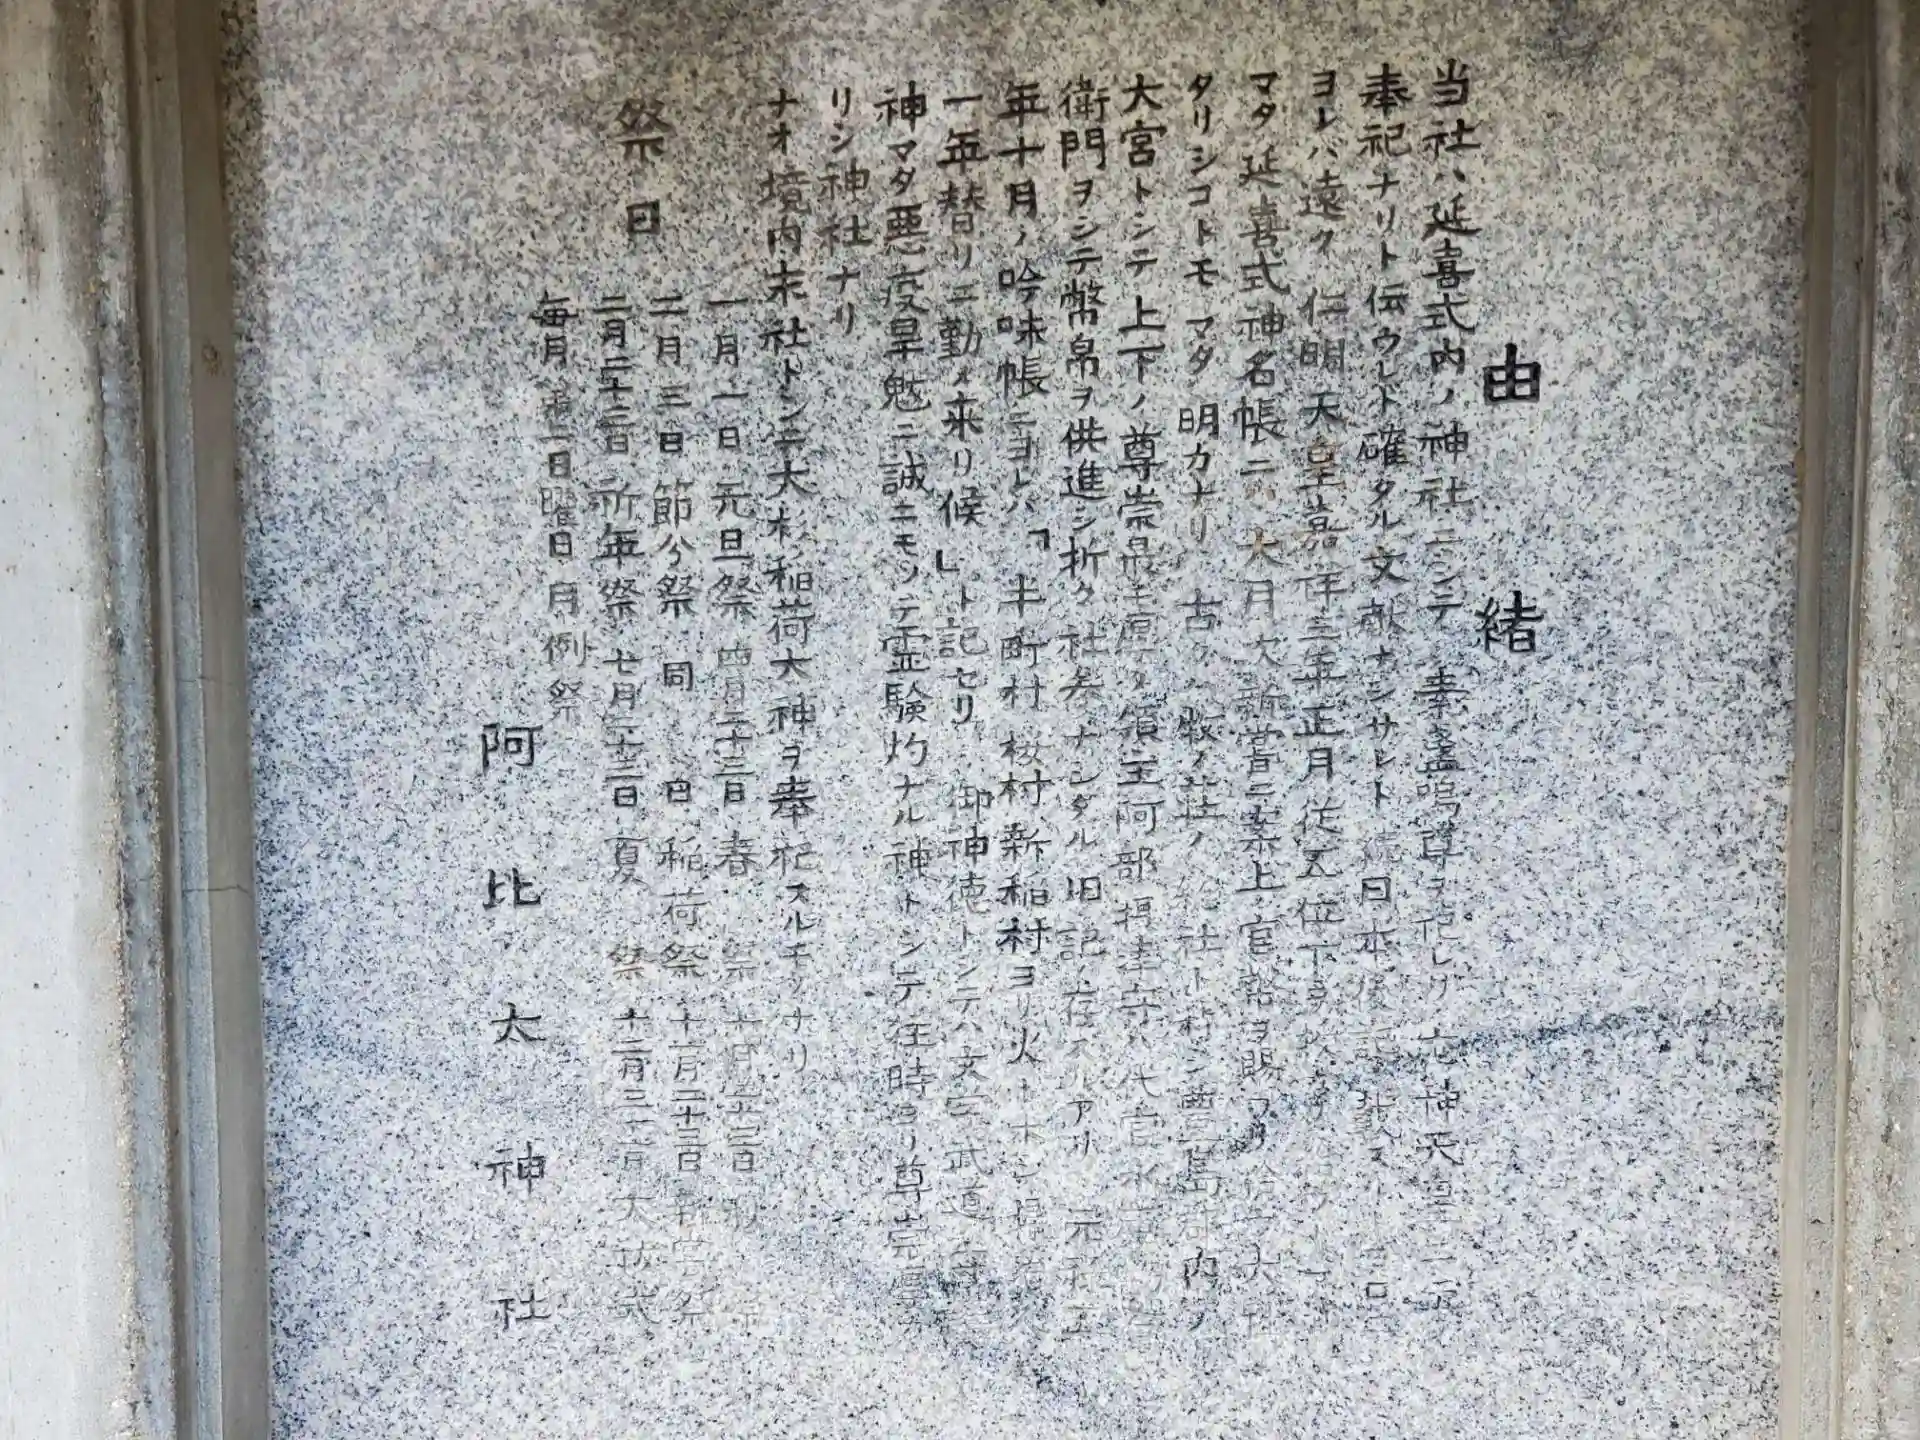 由緒
当社ハ延喜式内ノ神社ニシテ 素盞嗚尊ヲ祀レリ 元神天皇
奉祀ナリト伝ウレド確タル文献ナシサレド 続日本後記載
ヨレバ遠ク 仁明天皇嘉祥三年正月従五位下ヲ
マタ延喜式神名帳ニハ 大月次新嘗ニ案上ノ官幣ヲ賜フ 大社
タリシコトモ マタ 明カナリ 古クハ牧ノ荘ノ総社ト称シ豊島郡内ノ
大宮トシテ上下ノ尊崇最モ厚ク領主阿部摂津守ハ代官
衛門ヲシテ幣帛ヲ供進シ祈ク社参ナシタル旧記ノ存スルアリ 元禄五
年十月ノ吟味帳ニヨレバ「半町村 桜村 新稲村ヨリ火トボシ
一年替リニ勤メ来リ候」ト記セリ 御神徳トシテハ文学武道
神マタ悪疫旱魃ニ誠ニモッテ霊験灼ナル神トシテ往時ヨリ尊崇
リシ神社ナリ
ナオ境内末社トシテ大杉稲荷大神ヲ奉祀スルモノナリ
祭日
一月一日 元旦祭 四月二十三日 春 祭
二月三日 節分祭 同 日 稲荷祭 十一月二十三日 新嘗祭
二月二十三日 祈年祭 七月二十三日 夏 祭 十二月三十一日 大祓式
毎月第一日曜日 月例祭
阿比太神社